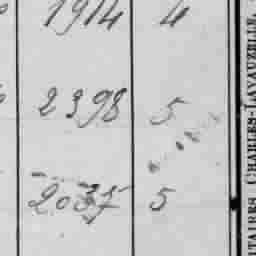 1914 4
2398 5
2037 5
ITAIRES CHARLES-LAVAUZELLE.